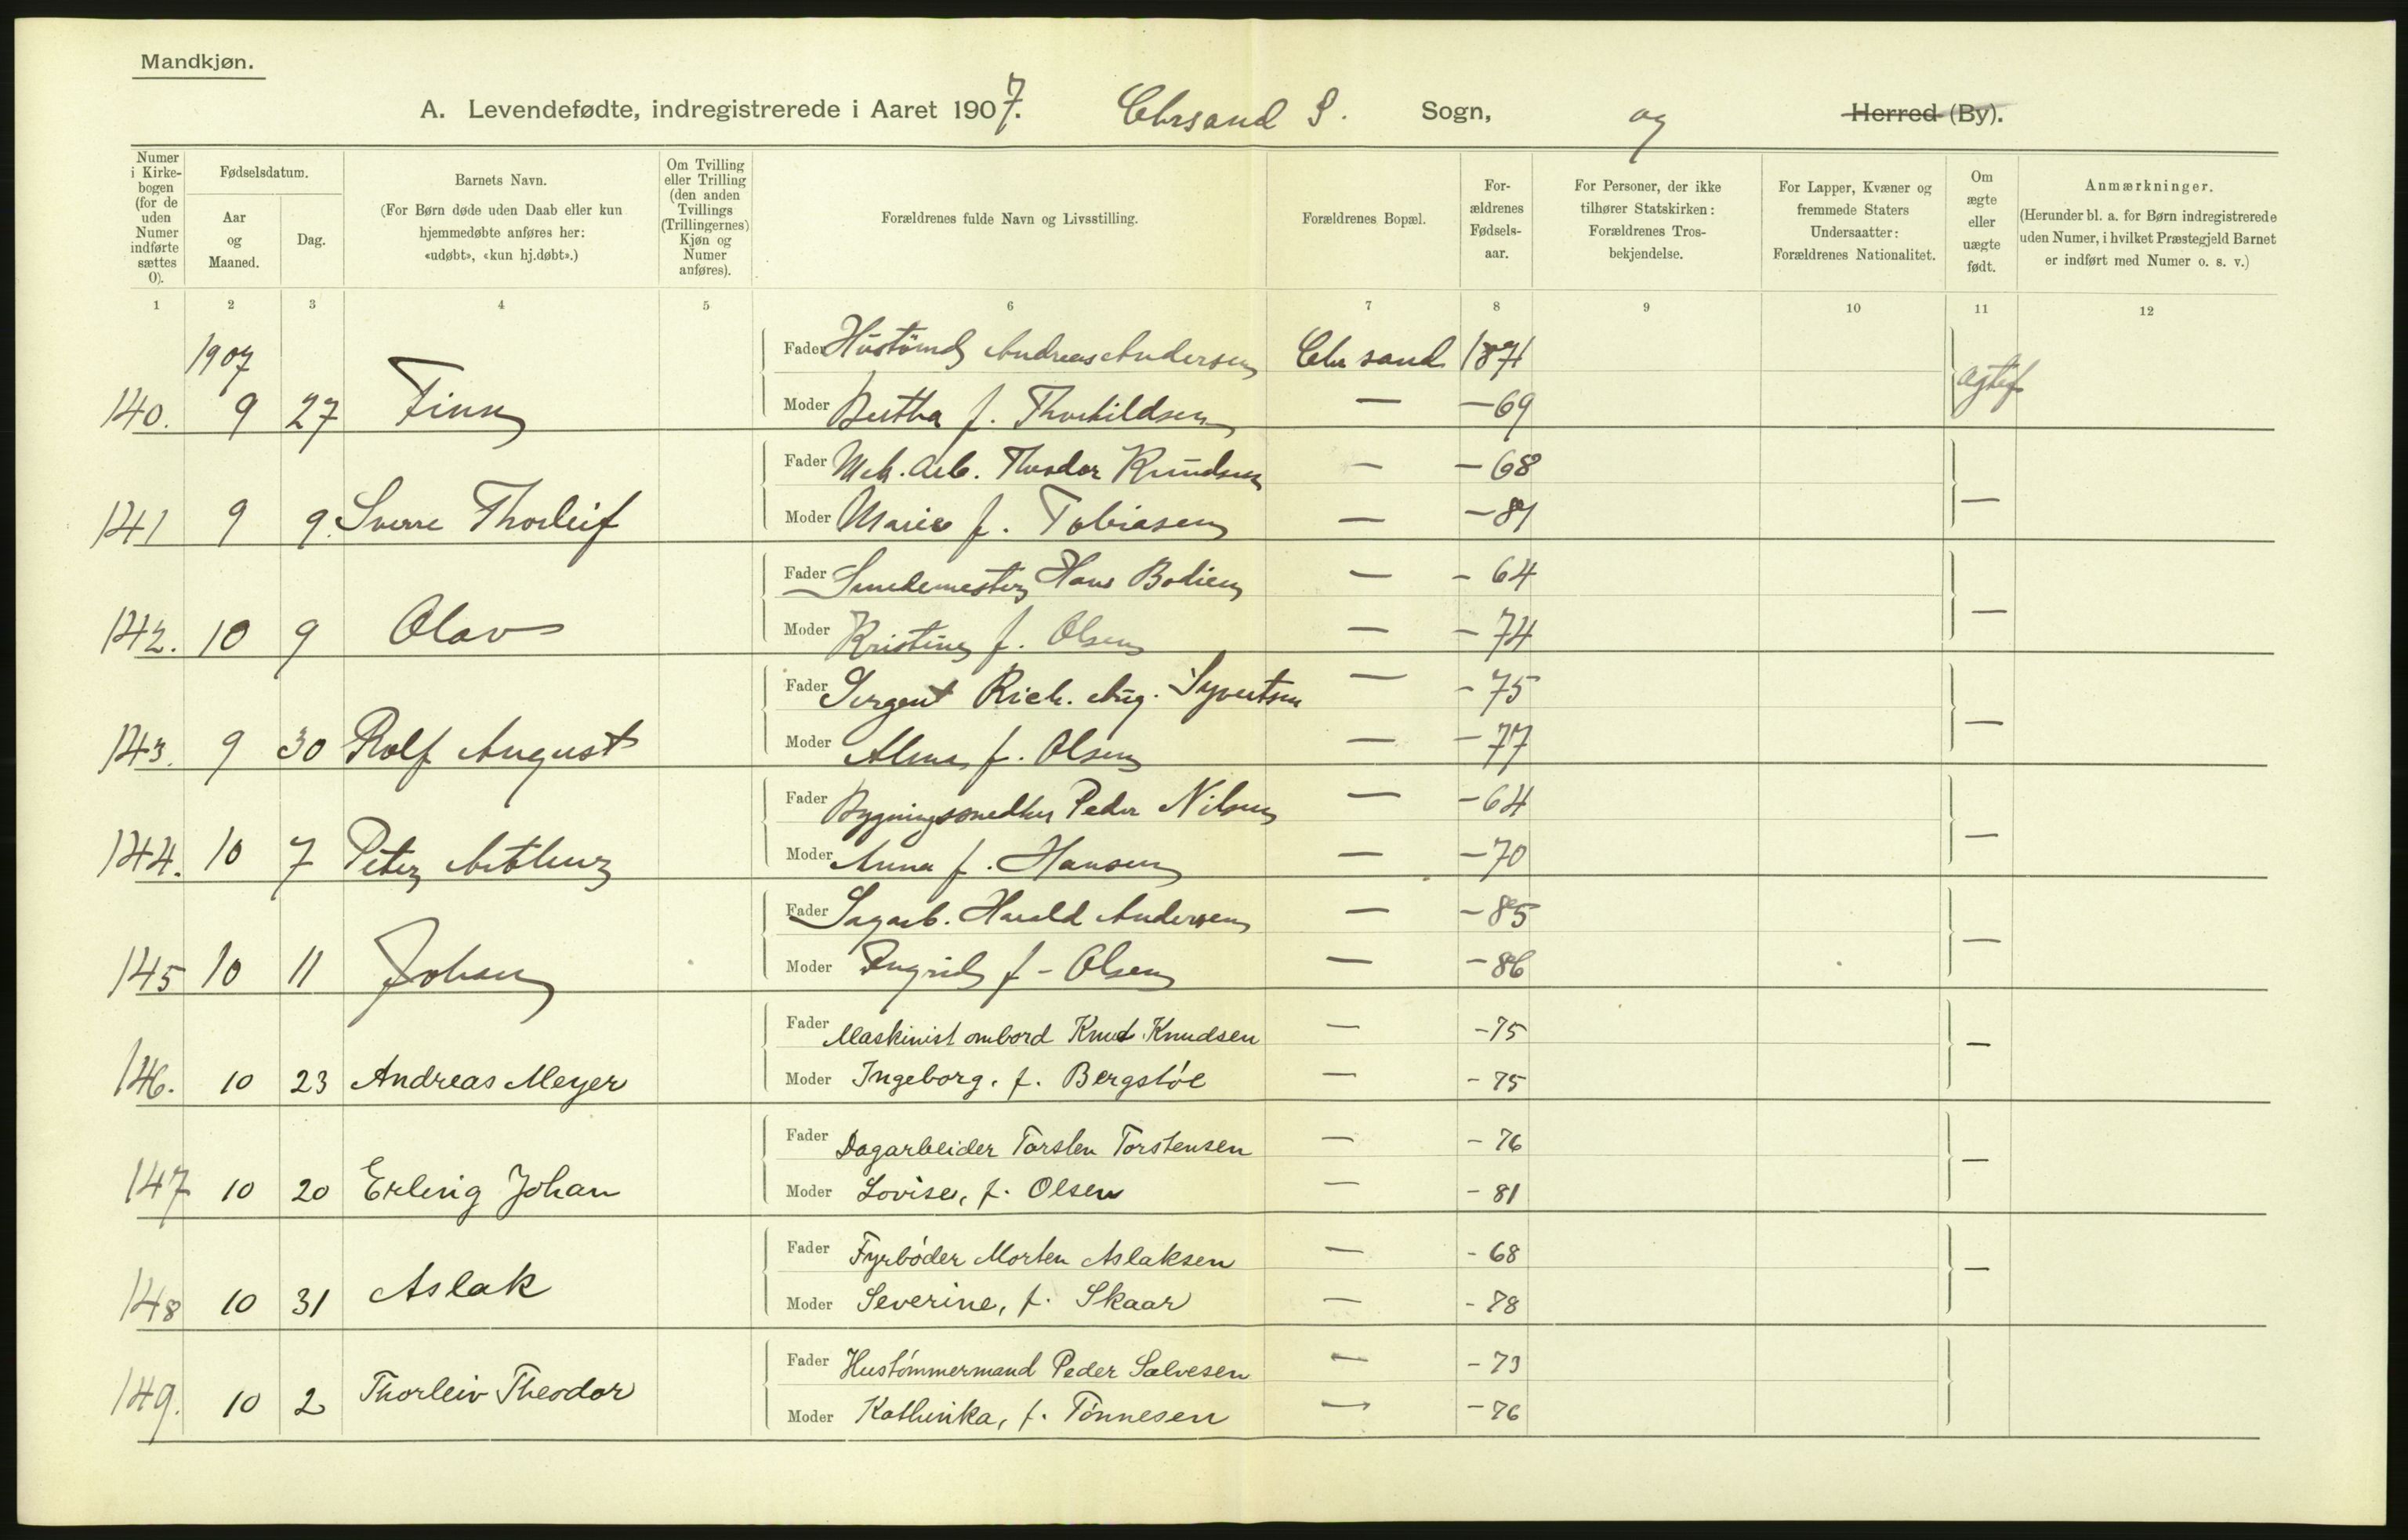 Mandkjøn.
A. Levendefødte, indregistrerede i Aaret 1907. Chrsand S. Sogn, og Herred (By).
Numer i Kirkebogen (for de uden Numer indførte sættes 0).
Fødselsdatum.
Aar og Maaned.
Dag.
Barnets Navn.
(For Børn døde uden Daab eller kun hjemmedøbte anføres her: «udøbt», «kun hj.døbt».)
Om Tvilling eller Trilling (den anden Tvillings (Trillingernes) Kjøn og Numer anføres).
Forældrenes fulde Navn og Livsstilling.
Forældrenes Bopæl.
Forældrenes Fødselsaar.
For Personer, der ikke tilhører Statskirken: Forældrenes Trosbekjendelse.
For Lapper, Kvæner og fremmede Staters Undersaatter: Forældrenes Nationalitet.
Om ægte eller uægte født.
Anmærkninger.
(Herunder bl. a. for Børn indregistrerede uden Numer, i hvilket Præstegjeld Barnet er indført med Numer o. s. v.)
1 2 3 4 5 6 7 8 9 10 11 12
1907
Fader Hustømd Andreas Andersen Chrsand 1871
140. 9 27 Finn Moder Bertha f. Thorkildsen — — 69 ægtef
Fader Mek. Arb. Theodor Knudsen — — 68
141 9 9. Sverre Thorleif Moder Marie f. Tobiasen — — 81 —
Fader Smedemester Hans Bodien — — 64
142. 10 9 Olav Moder Kristine f. Olsen — — 74 —
Fader Sergent Rich. Aug. Syvertsen — — 75
143. 9 30 Rolf August Moder Alma f. Olsen — — 77 —
Fader Bygningssnedker Peder Nilsen — — 64
144. 10 7 Peter Arthur Moder Anna f. Hansen — — 70 —
Fader Sagarb. Harald Andersen — — 85
145 10 11 Johan Moder Ingrid f - Olsen — — 86 —
Fader Maskinist ombord Knut Knudsen — — 75
146. 10 23 Andreas Meyer Moder Ingeborg, f. Bergstöl — — 75 —
Fader Dagarbeider Torsten Torstensen — — 76
147 10 20 Erling Johan Moder Lovise, f. Olsen — — 81 —
Fader Fyrbøder Morten Aslaksen — - 68
148 10 31 Aslak Moder Severine, f. Skaar — - 78 —
Fader Hustømmermand Peder Salvesen — — 73
149. 10 2 Thorleiv Theodor Moder Kathinka, f. Tönnesen — — 76